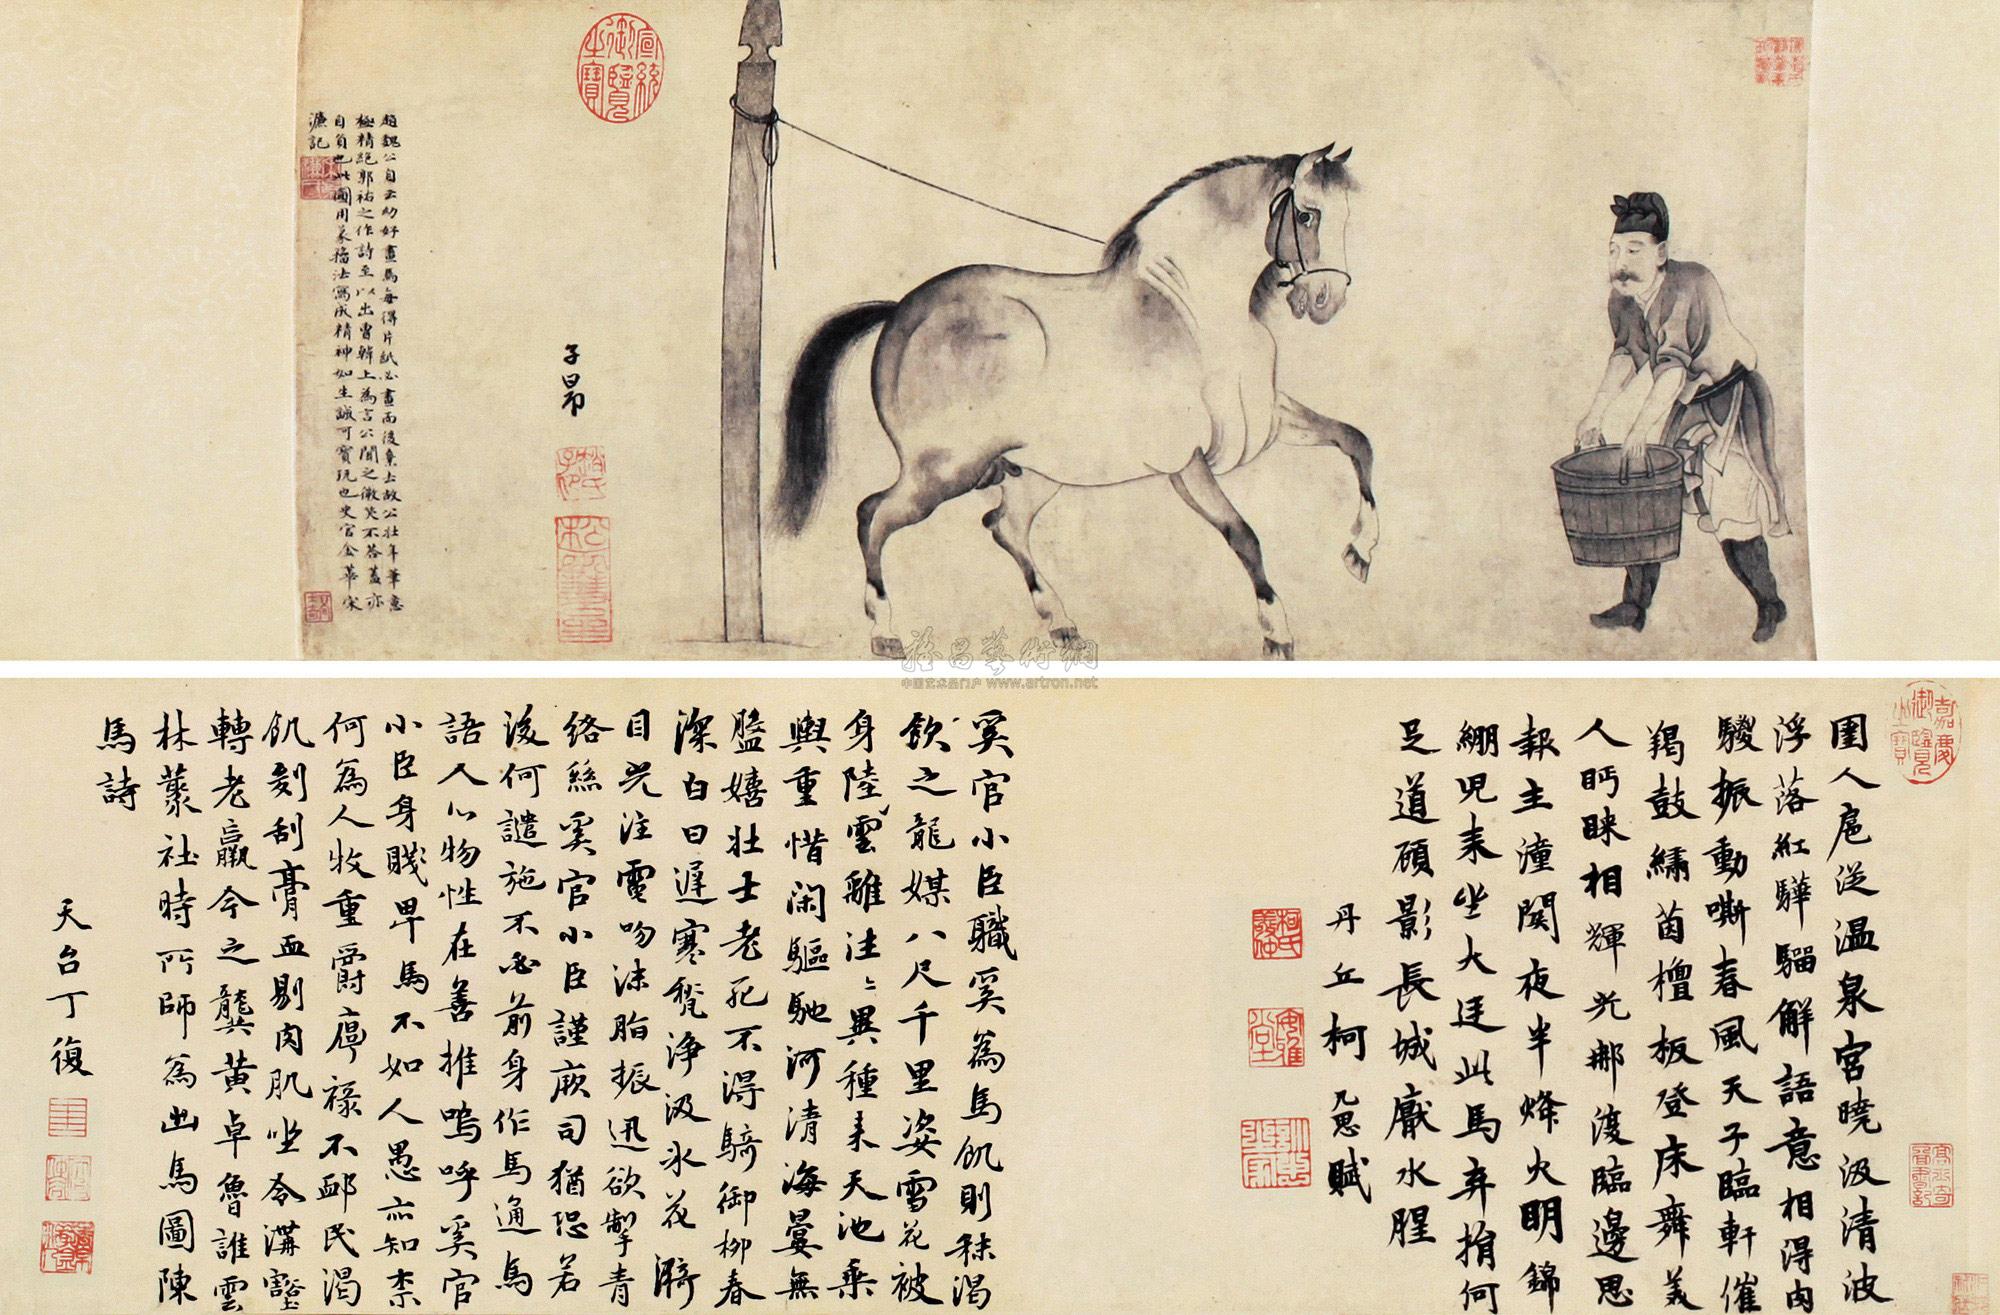 宣統御覽之寶
子昂
趙魏公自云幼好畫馬每得片紙必畫而後棄去故公壯年筆意
極精絕郭祐之作詩至以出曹韓上為言公聞之微笑不答蓋亦
自負也此圖用篆籀法寫成精神如生誠可寶玩也史官金華宋
濂記
雅昌藝術網
中国艺术品门户 www.artron.net
嘉慶御覽之寶
圉人扈從温泉宮曉汲清波
浮落紅驊騮解語意相得內
驄振動嘶春風天子臨軒催
羯鼓繡茵檀板登床舞美
人眄睞相輝光那復臨邊思
報主潼関夜半烽火明錦
綳児来坐大廷此馬弃捐何
足道碩影長城厰水腥
丹丘柯九思賦
柯氏敬仲
訓忠之家
奚官小臣職奚為馬飢則秣渴
飲之龍媒八尺千里姿雪花被
身陸雲離法異種来天池乗
輿重惜闲驅馳河清海晏無
盬嬉壮士老死不得騎御柳春
深白日遅寒甃浄汲氷花漪
目光注電吻沫脂振迅欲掣青
絡絲奚官小臣謹厥司猶恐若
後何譴施不必前身作馬通馬
語人心物性在善推嗚呼奚官
小臣身賤卑馬不如人愚亦知柰
何為人牧重爵廩禄不邺民渴
飢剜刮膏血剔肉肌坐令溝壑
轉老羸今之龔黄卓魯誰雲
林叢社時所師為出馬圖陳
馬詩
天台丁復